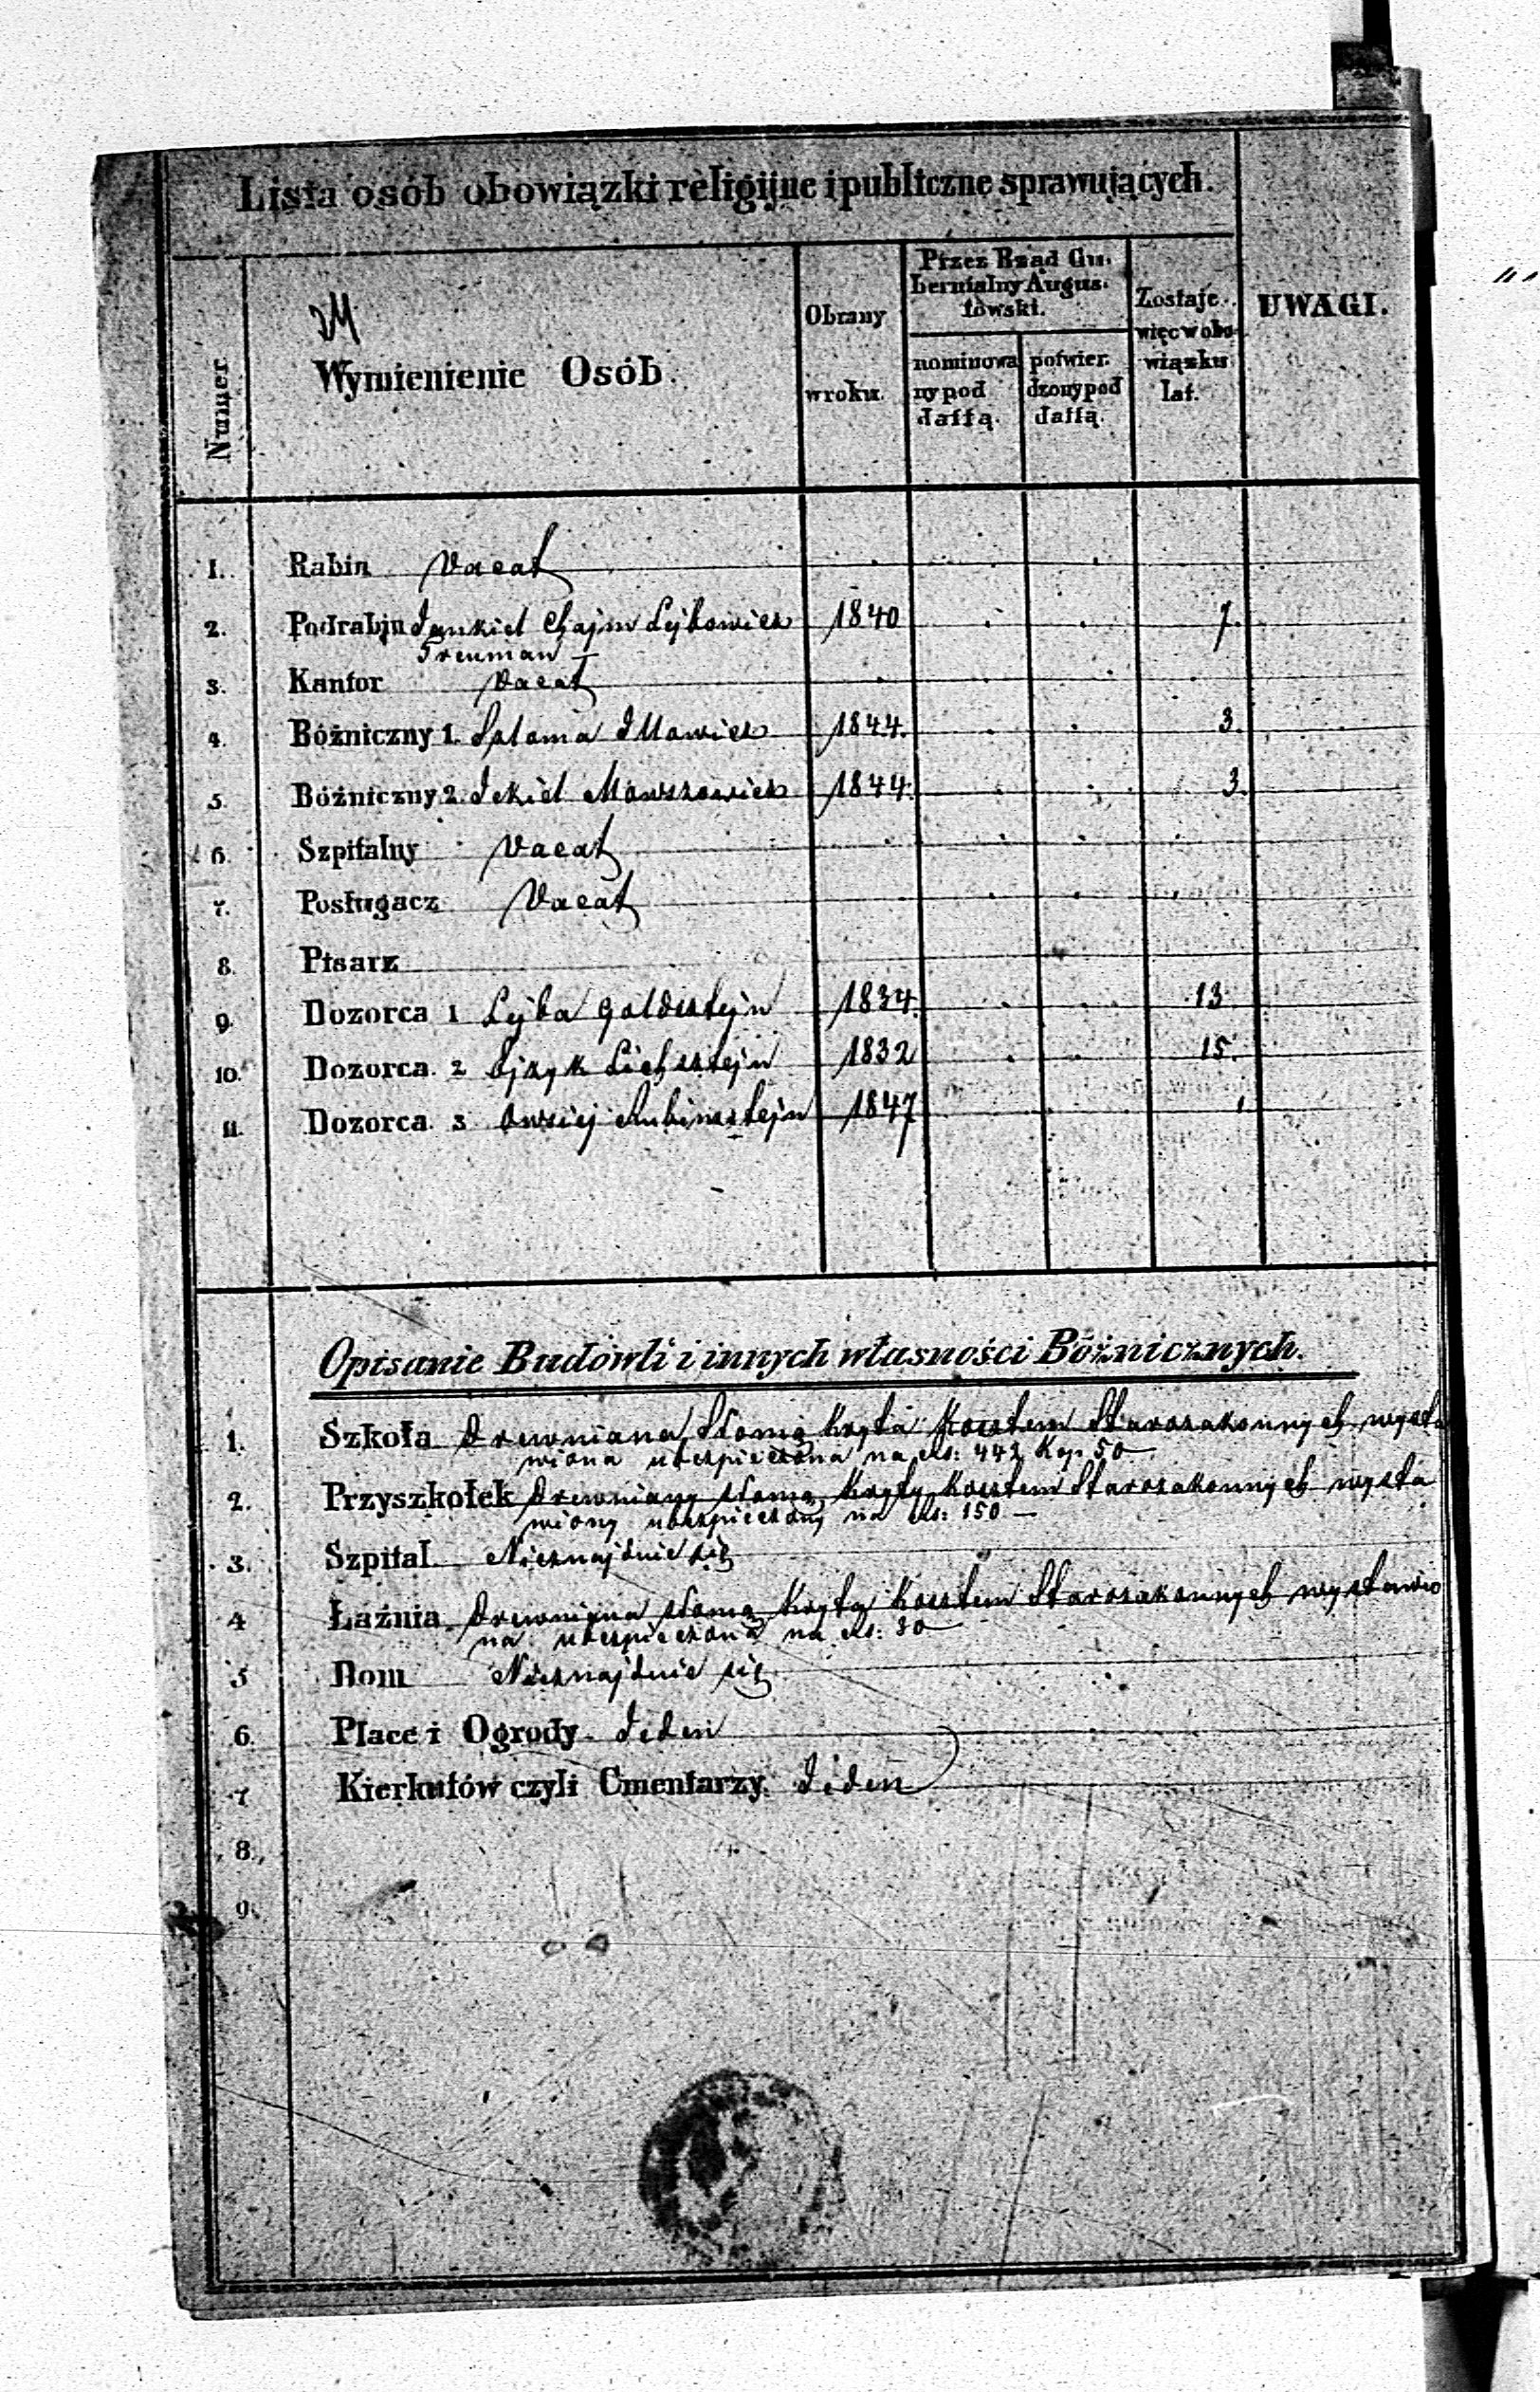 Lista osób obowiązki religijne i publiczne sprawujących.
Numer
Wymienienie Osób.
Obrany w roku.
Przez Rząd Gubernialny Augustowski.
nominowany pod dattą.
potwierdzony pod dattą.
Zostaje więc w obowiązku lat.
UWAGI.
1. Rabin Vacat
2. Podrabin Jankiel Chajm Lejbowicz 1840 7.
Treuman
3. Kantor Vacat
4. Bóżniczny 1. Szloma 1844. 3.
5. Bóżniczny 2. Jekiel Mowszowicz 1844. 3.
6. Szpitalny Vacat
7. Posługacz Vacat
8. Pisarz
9. Dozorca 1 Lejba Goldsztejn 1834. 13
10. Dozorca. 2 Ejzyk Lichsztejn 1832 15.
11. Dozorca. 3 Owsiej Rubinsztejn 1847
Opisanie Budowli i innych własności Bóżnicznych.
1. Szkoła Drewniana Słomą kryta kosztem Starozakonnych wysta
wiona ubezpieczona na Rs: 442 Kop 50
2. Przyszkołek Drewniany słomą kryty kosztem Starozakonnych wysta
wiony ubezpieczony na Rs: 150 —
3. Szpital Nieznajduie się
4 Łaźnia Drewniana słomą kryta kosztem Starozakonnych wystawio
na ubezpieczona na Rs: 30
5 Dom Nieznajduie się
6. Place i Ogrody Jeden
7 Kierkutów czyli Cmentarzy. Jeden
8.
9.